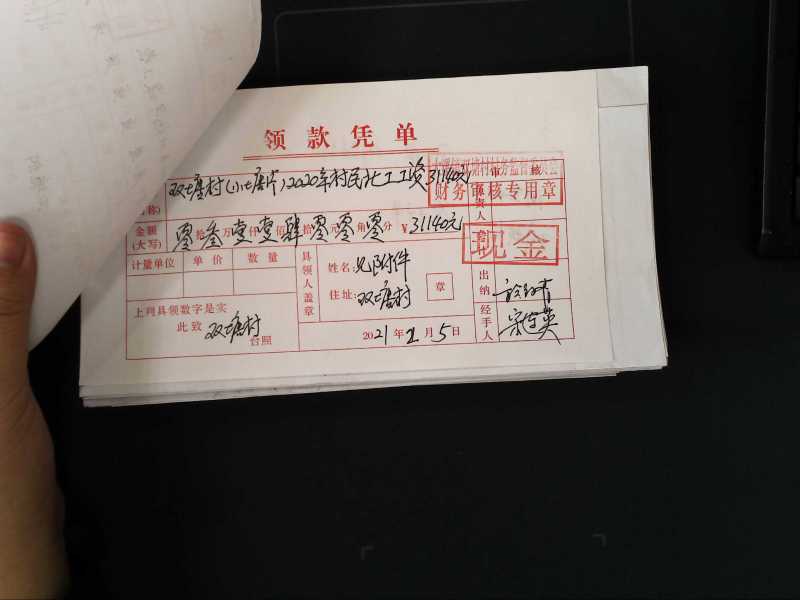 领款凭单
双塘村(山塘片)2020年村民社工工资31140元
审核
财务审核专用章
负责人
金额(大写) 零拾叁万壹仟壹佰肆拾零元零角零分 ¥31140元
现金
计量单位 单价 数量
具领人盖章
姓名: 见附件
住址: 双塘村
章
出纳
上列具领数字是实
此致 双塘村
台照
2021年2月5日
经手人